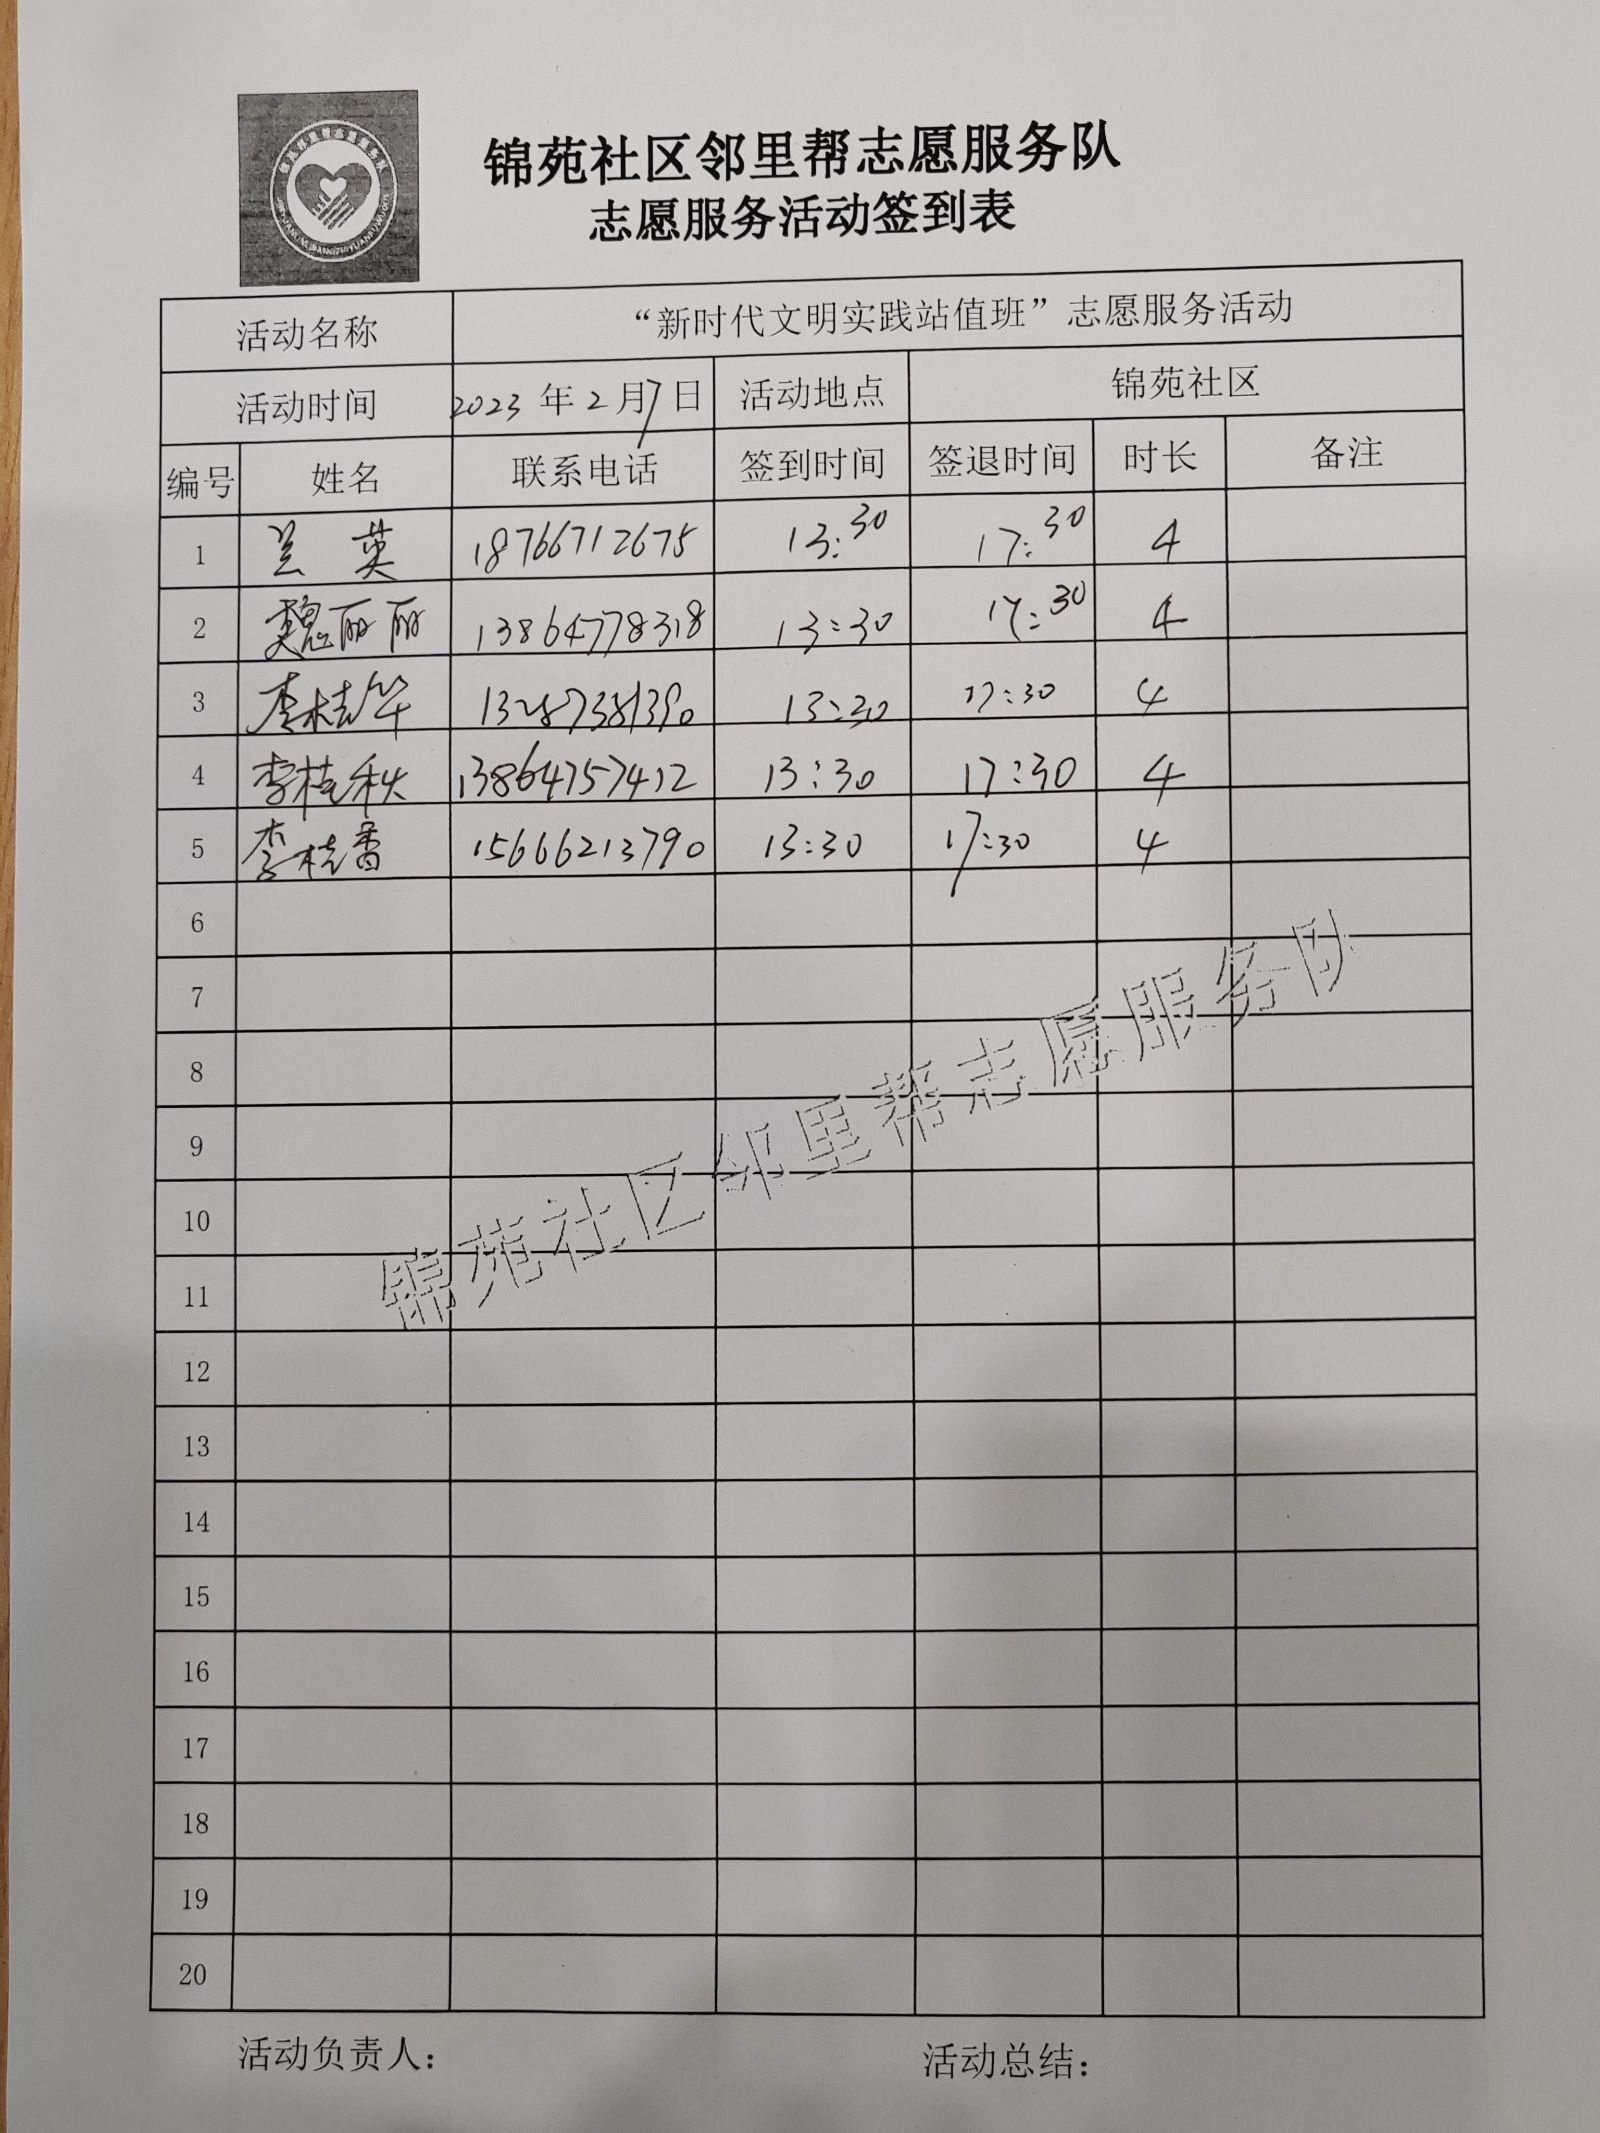 锦苑社区邻里帮志愿服务队
志愿服务活动签到表
活动名称 “新时代文明实践站值班”志愿服务活动
活动时间 2023年2月7日 活动地点 锦苑社区
编号 姓名 联系电话 签到时间 签退时间 时长 备注
1 兰英 18766712675 13:30 17:30 4
2 魏丽丽 13864778318 13:30 17:30 4
3 李桂华 13287381390 13:30 17:30 4
4 李桂秋 13864757412 13:30 17:30 4
5 李桂香 15666213790 13:30 17:30 4
6
7
8
9
10
11
12
13
14
15
16
17
18
19
20
锦苑社区邻里帮志愿服务队
活动负责人： 活动总结：